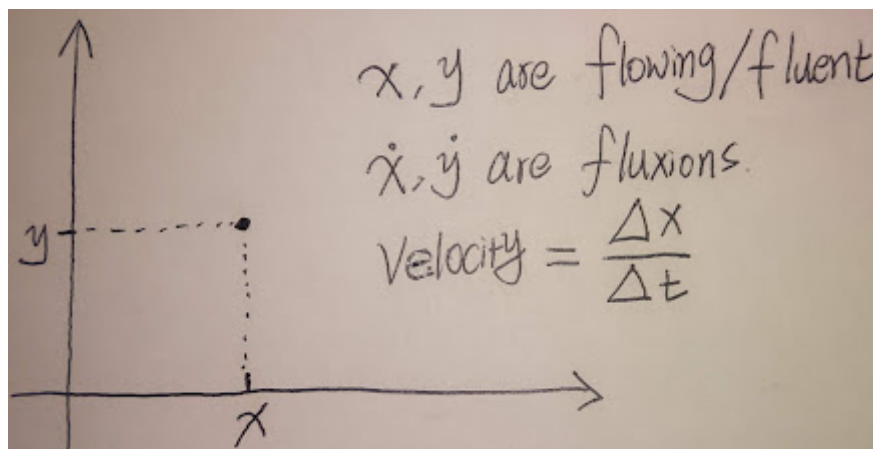 x, y are flowing/fluent
ẋ, ẏ are fluxions.
Velocity = Δx/Δt
y
x